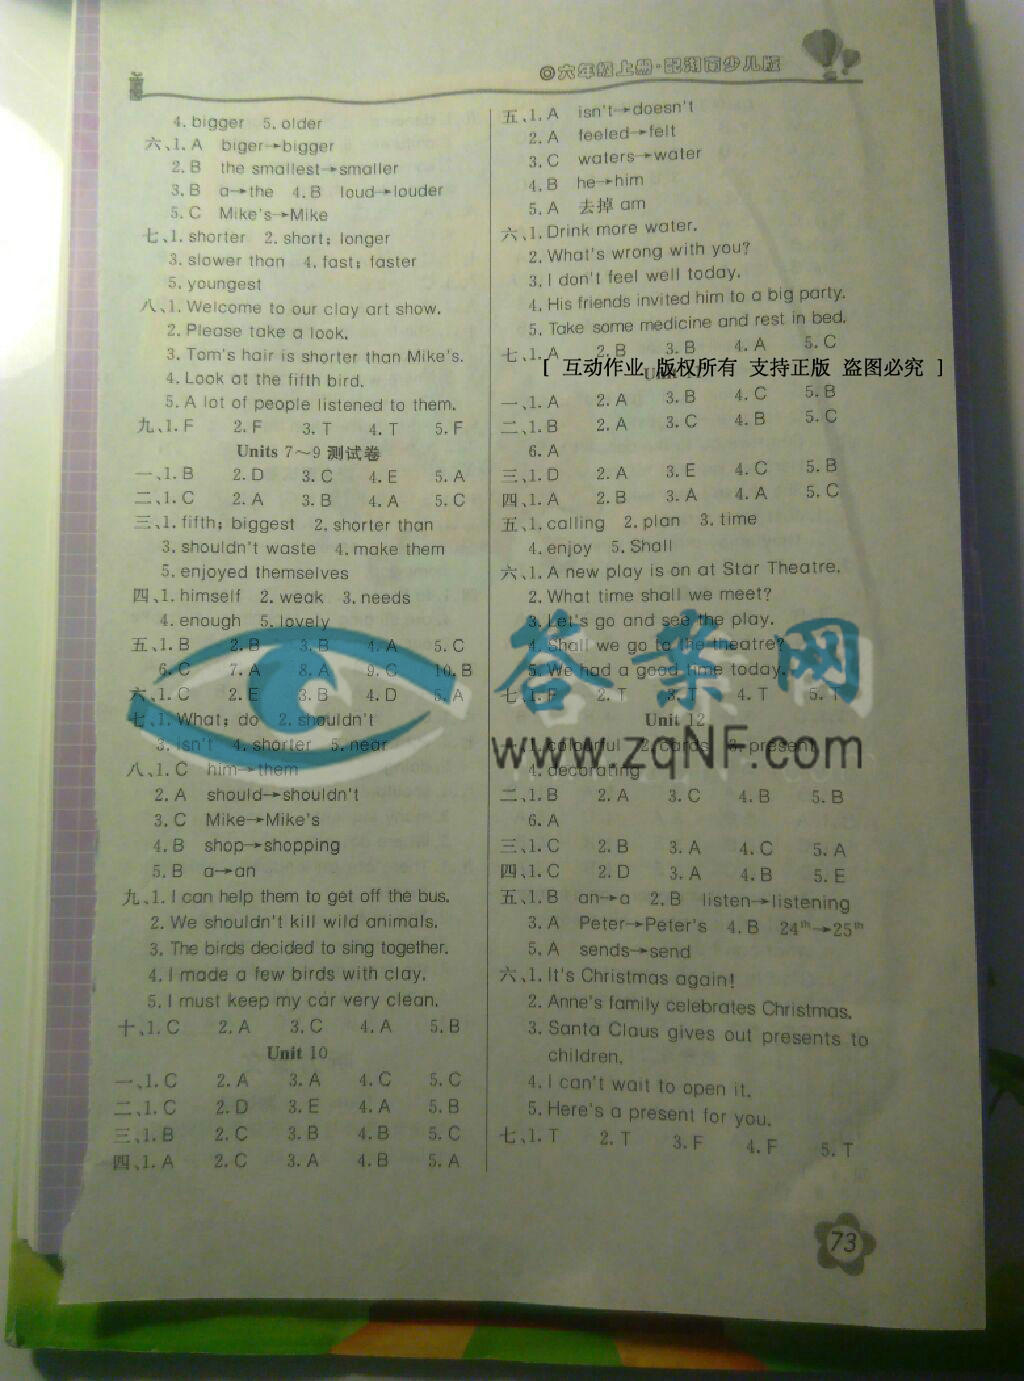 六年级上册·配湘南少儿版
4. bigger 5. older
六、1. A biger→bigger
2. B the smallest→smaller
3. B a→the 4. B loud→louder
5. C Mike's→Mike
七、1. shorter 2. short; longer
3. slower than 4. fast; faster
5. youngest
八、1. Welcome to our clay art show.
2. Please take a look.
3. Tom's hair is shorter than Mike's.
4. Look at the fifth bird.
5. A lot of people listened to them.
九、1. F 2. F 3. T 4. T 5. F
Units 7～9 测试卷
一、1. B 2. D 3. C 4. E 5. A
二、1. C 2. A 3. B 4. A 5. C
三、1. fifth; biggest 2. shorter than
3. shouldn't waste 4. make them
5. enjoyed themselves
四、1. himself 2. weak 3. needs
4. enough 5. lovely
五、1. B 2. B 3. B 4. A 5. C
6. C 7. A 8. A 9. C 10. B
六、1. C 2. E 3. B 4. D 5. A
七、1. What; do 2. shouldn't
3. isn't 4. shorter 5. near
八、1. C him→them
2. A should→shouldn't
3. C Mike→Mike's
4. B shop→shopping
5. B a→an
九、1. I can help them to get off the bus.
2. We shouldn't kill wild animals.
3. The birds decided to sing together.
4. I made a few birds with clay.
5. I must keep my car very clean.
十、1. C 2. A 3. C 4. A 5. B
Unit 10
一、1. C 2. A 3. A 4. C 5. C
二、1. C 2. D 3. E 4. A 5. B
三、1. B 2. C 3. B 4. B 5. C
四、1. A 2. C 3. A 4. B 5. A
五、1. A isn't→doesn't
2. A feeled→felt
3. C waters→water
4. B he→him
5. A 去掉 am
六、1. Drink more water.
2. What's wrong with you?
3. I don't feel well today.
4. His friends invited him to a big party.
5. Take some medicine and rest in bed.
七、1. A 2. B 3. B 4. A 5. C
[ 互动作业 版权所有 支持正版 盗图必究 ]
一、1. A 2. A 3. B 4. C 5. B
二、1. B 2. A 3. C 4. B 5. C
6. A
三、1. D 2. A 3. E 4. C 5. B
四、1. A 2. B 3. A 4. A 5. C
五、1. calling 2. plan 3. time
4. enjoy 5. Shall
六、1. A new play is on at Star Theatre.
2. What time shall we meet?
3. Let's go and see the play.
4. Shall we go to the theatre?
5. We had a good time today.
七、1. F 2. T 3. T 4. T 5. T
Unit 12
一、1. colourful 2. cards 3. present
4. decorating
二、1. B 2. A 3. C 4. B 5. B
6. A
三、1. C 2. B 3. A 4. C 5. A
四、1. C 2. D 3. A 4. B 5. E
五、1. B an→a 2. B listen→listening
3. A Peter→Peter's 4. B 24th→25th
5. A sends→send
六、1. It's Christmas again!
2. Anne's family celebrates Christmas.
3. Santa Claus gives out presents to
children.
4. I can't wait to open it.
5. Here's a present for you.
七、1. T 2. T 3. F 4. F 5. T
73
答案网
www.zqNF.com